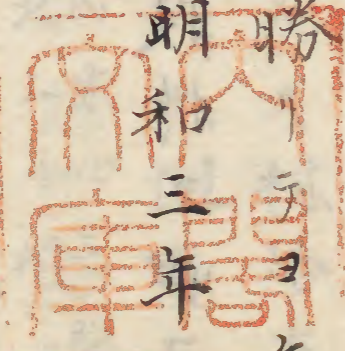 勝リテヨ
明和三年
内閣
文庫